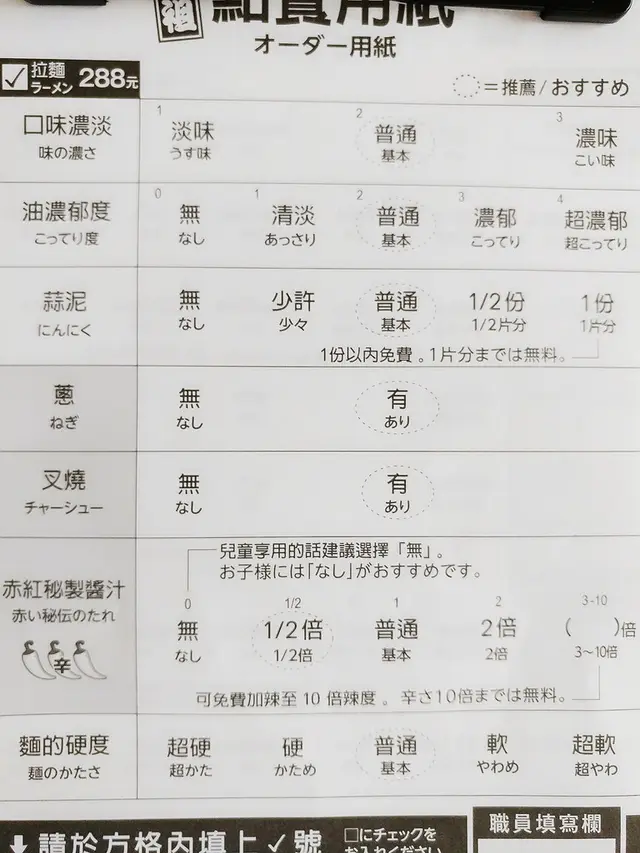 祖 點餐用紙
オーダー用紙
✓ 拉麵 288元
ラーメン
= 推薦 / おすすめ
口味濃淡
味の濃さ
1 淡味
うす味
2 普通
基本
3 濃味
こい味
油濃郁度
こってり度
0 無
なし
1 清淡
あっさり
2 普通
基本
3 濃郁
こってり
4 超濃郁
超こってり
蒜泥
にんにく
無
なし
少許
少々
普通
基本
1/2份
1/2片分
1份
1片分
1份以內免費。1片分までは無料。
蔥
ねぎ
無
なし
有
あり
叉燒
チャーシュー
無
なし
有
あり
赤紅秘製醬汁
赤い秘伝のたれ
辛
兒童享用的話建議選擇「無」。
お子様には「なし」がおすすめです。
0
無
なし
1/2
1/2倍
1/2倍
1
普通
基本
2
2倍
2倍
3-10
( )倍
3～10倍
可免費加辣至 10 倍辣度。辛さ10倍までは無料。
麵的硬度
麺のかたさ
超硬
超かた
硬
かため
普通
基本
軟
やわめ
超軟
超やわ
請於方格內填上✓號
□にチェックを
お入れください
職員填寫欄